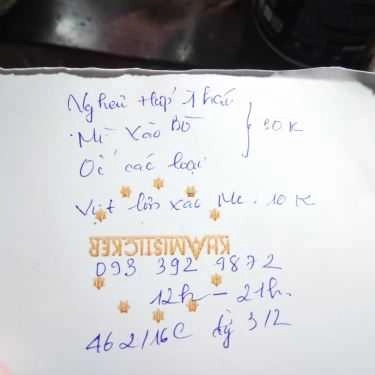 Nghêu Hấp Thái
Mì Xào Bò } 30K
Ốc các loại
Vịt lộn xào Me. 10K
KHAMISTICKER
093 392 9872
12h - 21h.
462/16C đg 3/2